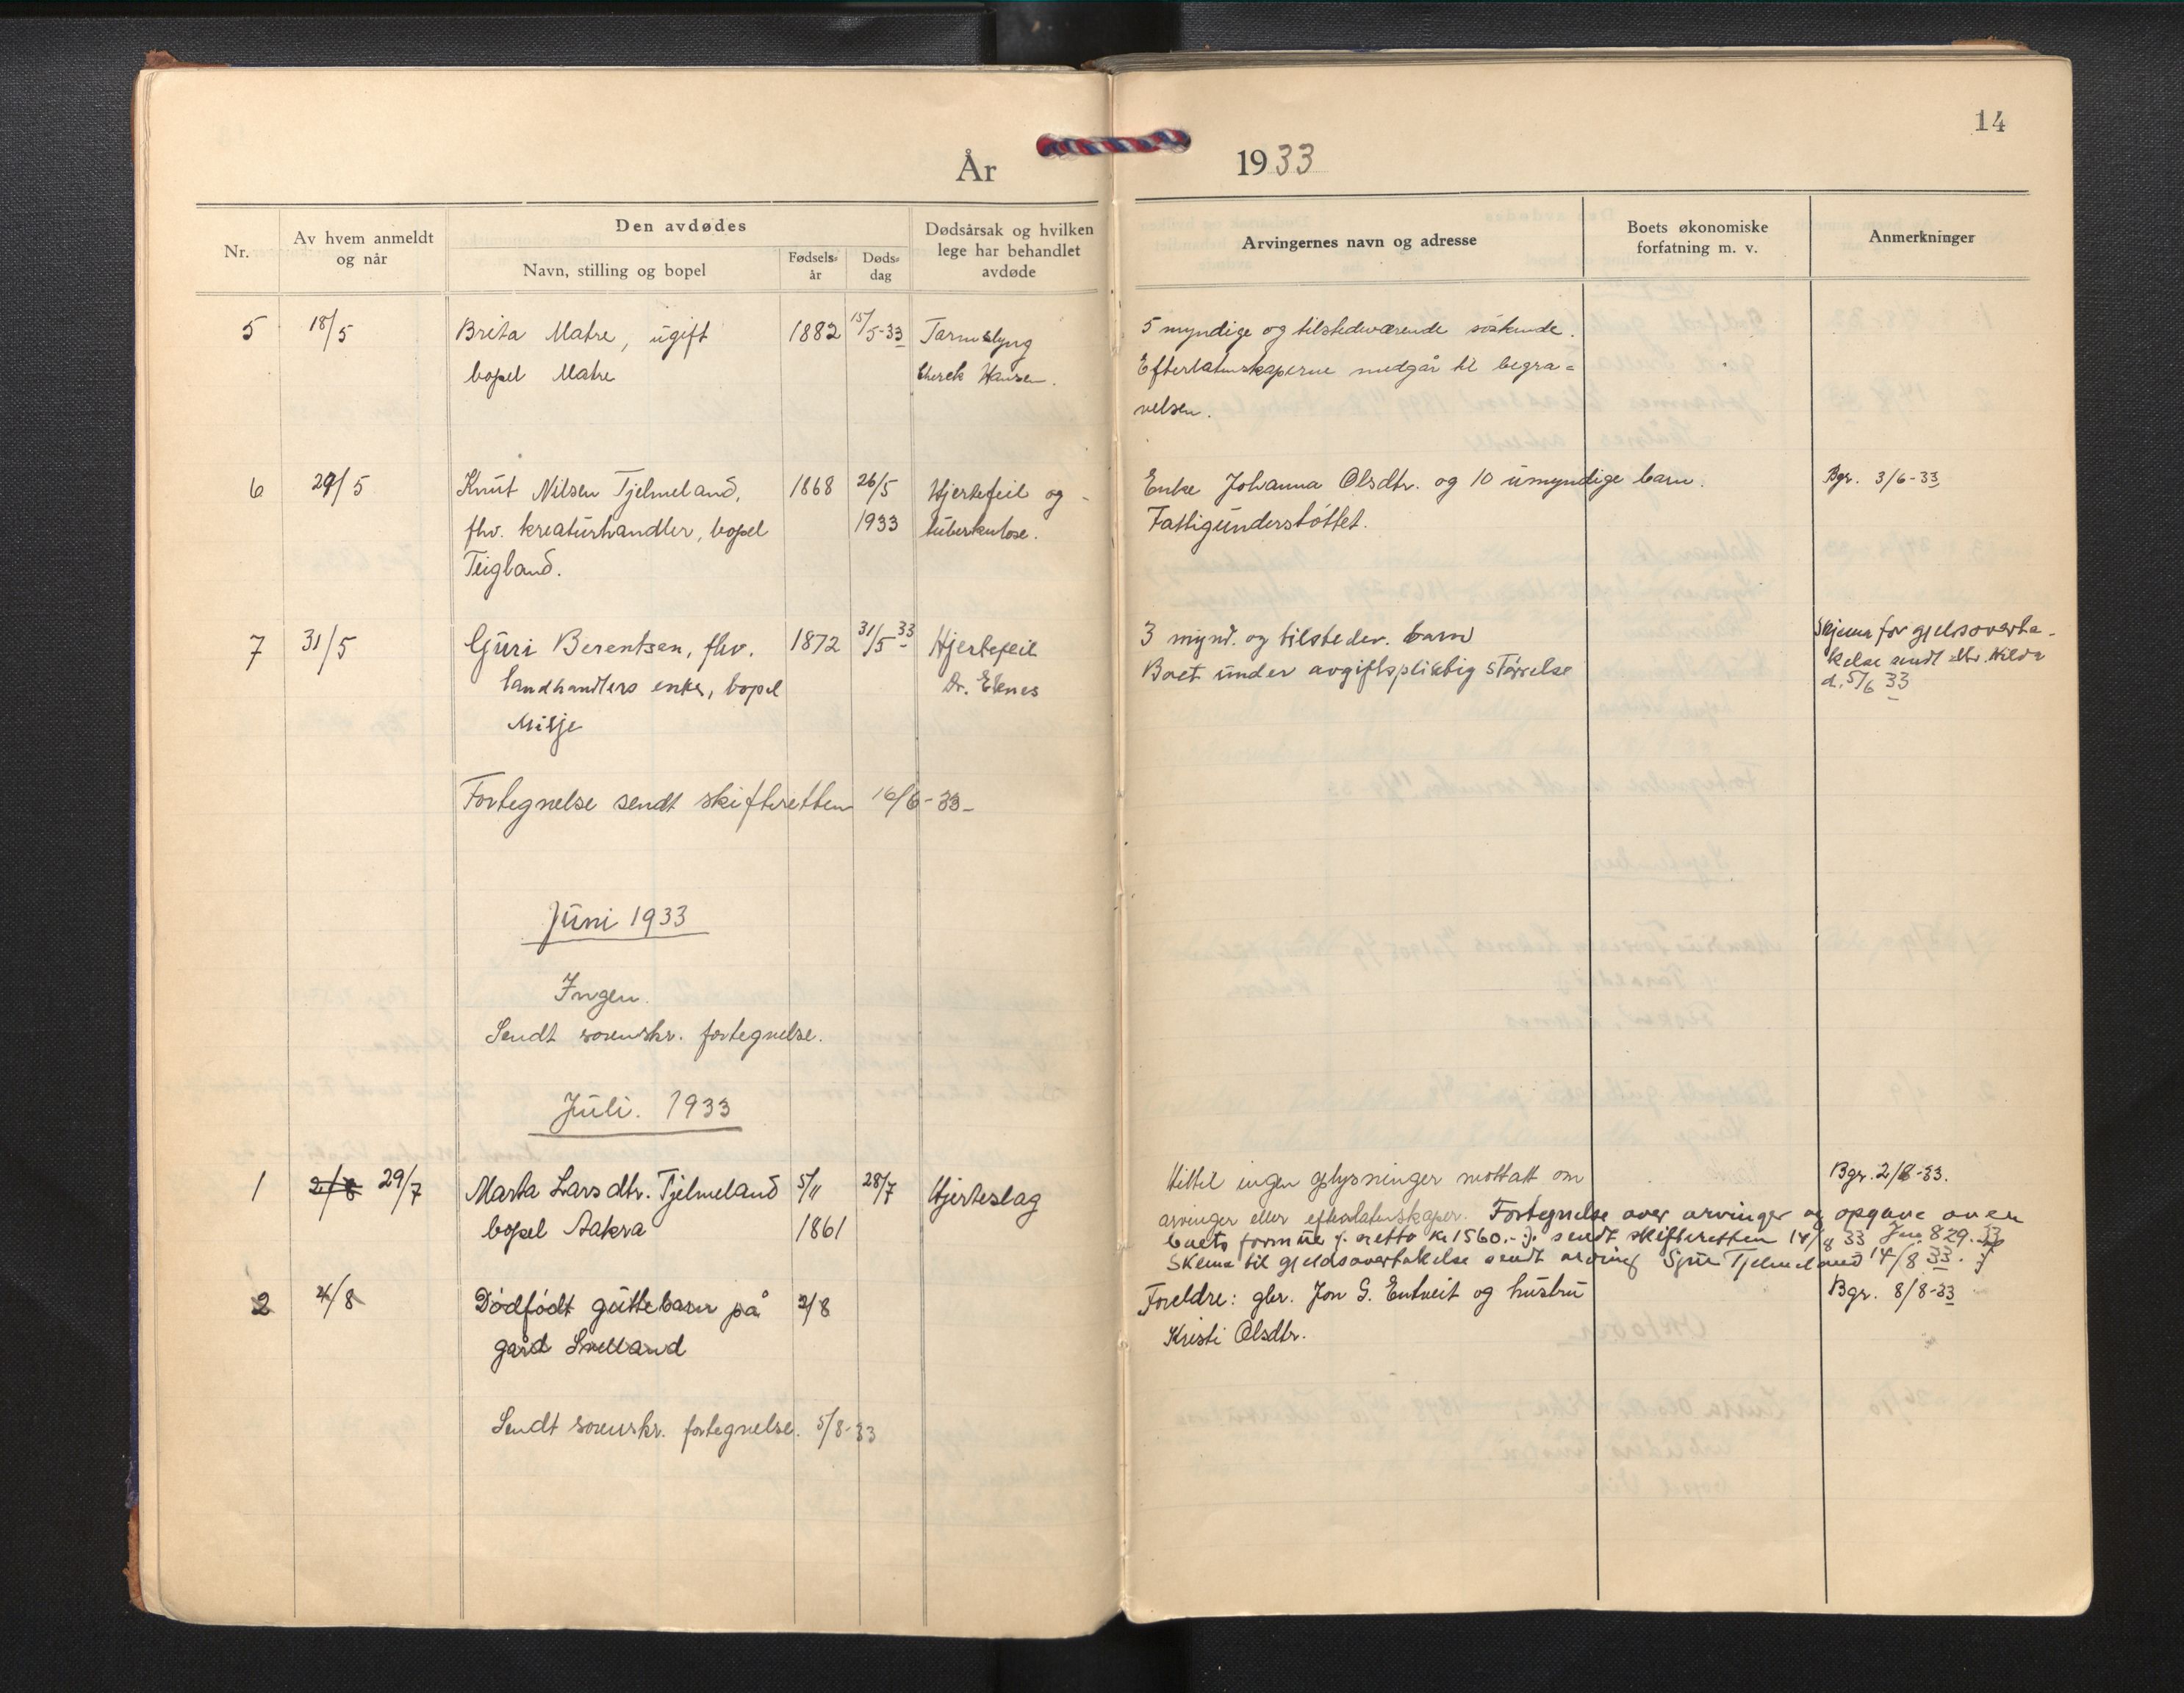 14
År 1933
Nr.
Av hvem anmeldt
og når
Den avdødes
Navn, stilling og bopel
Fødsels-
år
Døds-
dag
Dødsårsak og hvilken
lege har behandlet
avdøde
Arvingernes navn og adresse
Boets økonomiske
forfatning m. v.
Anmerkninger
5 18/5 Brita Matre, ugift 1882 15/5-33 Tarmslyng 5 myndige og tilstedeværende søskende.
bopel Matre Hansen. Efterlatenskaperne medgår til begra-
velsen.
6 29/5 Knut Nilsen Tjelmeland, 1868 26/5 Hjertefeil og Enke Johanna Olsdtr. og 10 umyndige barn. Bgr. 3/6-33
fhv. kreaturhandler, bopel 1933 tuberkulose. Fattigunderstøttet.
Teigland.
7 31/5 Guri Berentsen, fhv. 1872 31/5-33 Hjertefeil 3 mynd. og tilstedev. barn Skjema for gjeldsoverta-
landhandlers enke, bopel Dr. Eknes Boet under avgiftspliktig størrelse kelse sendt Hilda
Milje d. 5/6 33
Fortegnelse sendt skifteretten 16/6-33-
Juni 1933
Ingen.
Sendt sorenskr. fortegnelse.
Juli. 1933
1 2/8 29/7 Marta Larsdtr. Tjelmeland 5/11 28/7 Hjerteslag Hittil ingen oplysninger mottatt om Bgr. 2/8-33.
bopel Aakra 1861 arvinger eller efterlatenskaper. Fortegnelse over arvinger og opgave over
boets formue netto kr 1560.- sendt skifteretten 14/8 33 Jnr 829.33
Skema til gjeldsovertakelse sendt arving Sjur Tjelmeland 14/8 33.
2 4/8 Dødfødt guttebarn på 2/8 Foreldre: gbr. Jon G. Entveit og hustru Bgr. 8/8-33
gård Kristi Olsdtr.
Sendt sorenskr. fortegnelse. 5/8-33